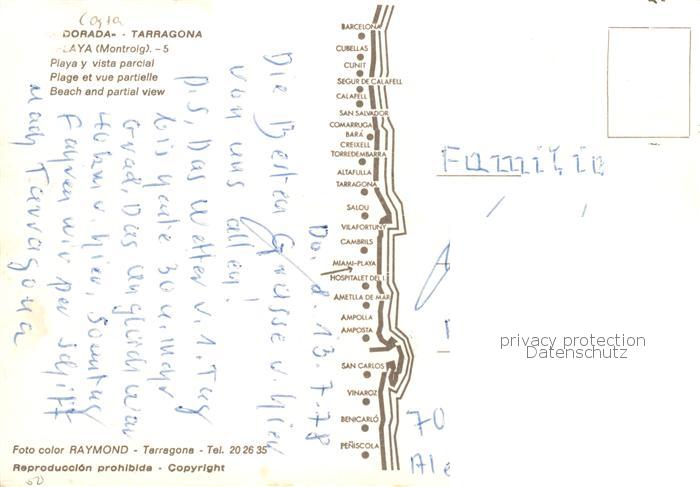 Costa
DORADA» - TARRAGONA
PLAYA (Montroig). - 5
Playa y vista parcial
Plage et vue partielle
Beach and partial view
Do. d. 13.7.78
Die Besten Grüsse v. hier
von uns allen!
P.S. Das Wetter v. 1. Tag
bis heute 30 u. mehr
Grad, Das Unglück war
40 km v. hier, Sonntag
Fahren wir per Schiff
nach Tarragona
Foto color RAYMOND - Tarragona - Tel. 20 26 35
Reproducción prohibida - Copyright
BARCELONA
CUBELLAS
CUNIT
SEGUR DE CALAFELL
CALAFELL
SAN SALVADOR
COMARRUGA
BARÁ
CREIXELL
TORREDEMBARRA
ALTAFULLA
TARRAGONA
SALOU
VILAFORTUNY
CAMBRILS
MIAMI-PLAYA
HOSPITALET DEL I.
AMETLLA DE MAR
AMPOLLA
AMPOSTA
SAN CARLOS
VINAROZ
BENICARLÓ
PEÑISCOLA
Familie
privacy protection
Datenschutz
70
Ale